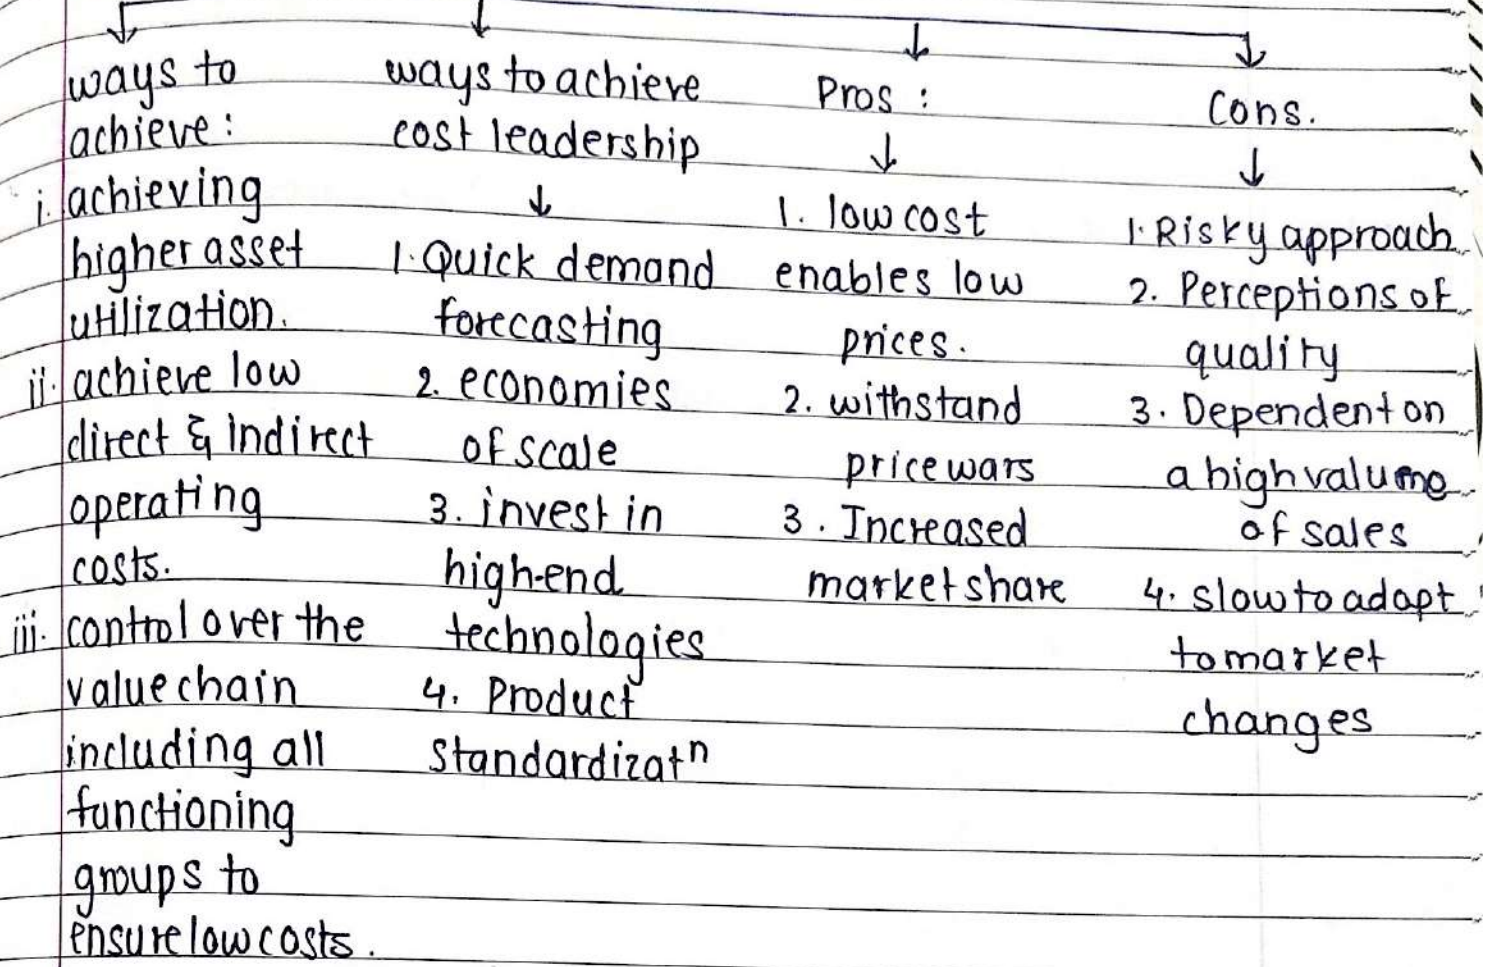 ways to
achieve:
i. achieving
higher asset
utilization.
ii. achieve low
direct & indirect
operating
costs.
iii. control over the
value chain
including all
functioning
groups to
ensure low costs.
ways to achieve
cost leadership
1. Quick demand
forecasting
2. economies
of scale
3. invest in
high-end
technologies
4. Product
Standardizatⁿ
Pros :
1. low cost
enables low
prices.
2. withstand
price wars
3. Increased
market share
Cons.
1. Risky approach
2. Perceptions of
quality
3. Dependent on
a high valume
of sales
4. slow to adapt
to market
changes